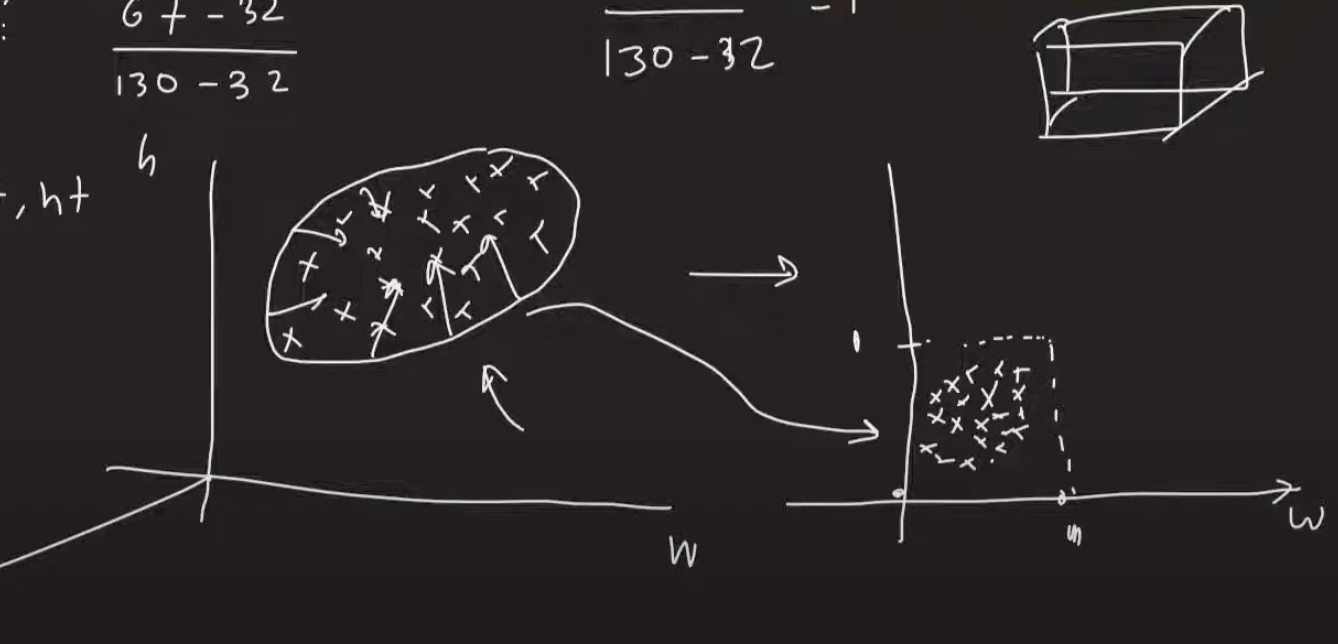 67 - 32
130 - 32
130 - 32
h
, ht
1
W
W